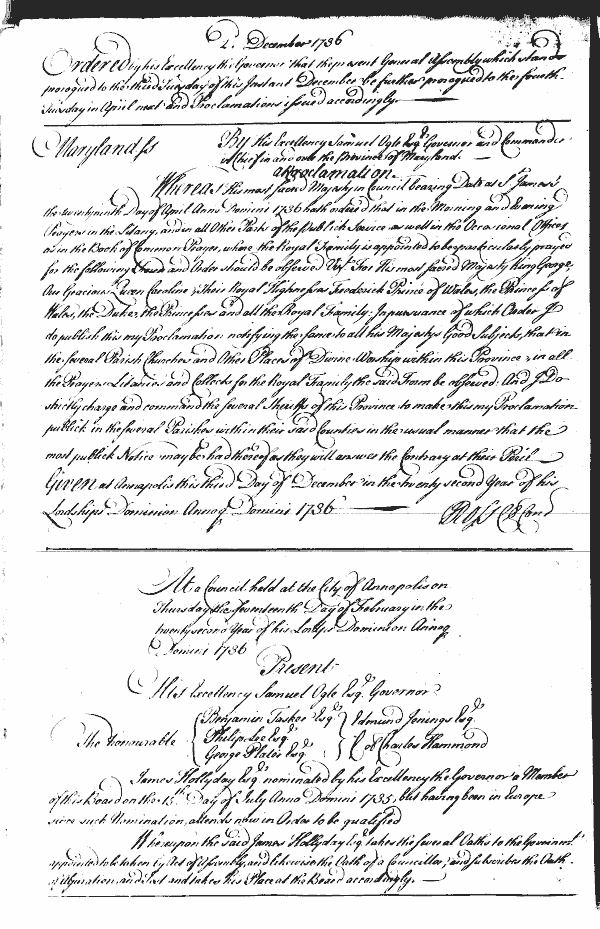 2. December 1736
Ordered by his Excellency the Governor that the present General Assembly which stands
prorogued to the third Tuesday of this Instant December be further prorogued to the fourth
Tuesday in April next and Proclamations issued accordingly.
Maryland ss
By His Excellency Samuel Ogle Esqr. Governor and Commander
in Chief in and over the Province of Maryland.
A Proclamation
Whereas His most sacred Majesty in Council bearing Date at St James's
the twenty ninth Day of April Anno Domini 1736 hath ordered that in the Morning and Evening
Prayers in the Litany, and in all Other Parts of the Publick Service as well in the Occasional Offices
as in the Book of Common Prayer, where the Royal Family is appointed to be particularly prayed
for the following Form and Order should be observed Vizt. For His most sacred Majesty King George,
Our Gracious Queen Caroline, Their Royal Highnesses Frederick Prince of Wales, the Princess of
Wales, the Duke, the Princesses and all the Royal Family: In pursuance of which Order I
do publish this my Proclamation notifying the same to all his Majestys Good Subjects, that in
the several Parish Churches and Other Places of Divine Worship within this Province & in all
the Prayers Litanies and Collects for the Royal Family the said Form be observed. And I Do
strictly charge and command the several Sheriffs of this Province to make this my Proclamation
publick in the several Parishes within their said Counties in the usual manner that the
most publick Notice may be had thereof as they will answer the Contrary at their Peril
Given at Annapolis this third Day of December in the twenty second Year of his
Lordships Dominion Annoq Domini 1736
At a Council held at the City of Annapolis on
Thursday the seventeenth Day of February in the
twenty second Year of his Lordps Dominion Annoq
Domini 1736
Present
His Excellency Samuel Ogle Esqr. Governor
The honourable
Benjamin Tasker Esqr. Edmund Jenings Esqr.
Philip Lee Esqr.
George Plater Esqr. Col Charles Hammond
James Hollyday Esqr. nominated by his Excellency the Governor a Member
of this Board on the 15th Day of July Anno Domini 1735, but having been in Europe
since such Nomination, attends now in Order to be qualified
Whereupon the said James Hollyday Esqr. takes the several Oaths to the Government
appointed to be taken by Act of Assembly, and likewise the Oath of a Councillor, and subscribes the Oath
of Abjuration, and Test and takes his Place at the Board accordingly.